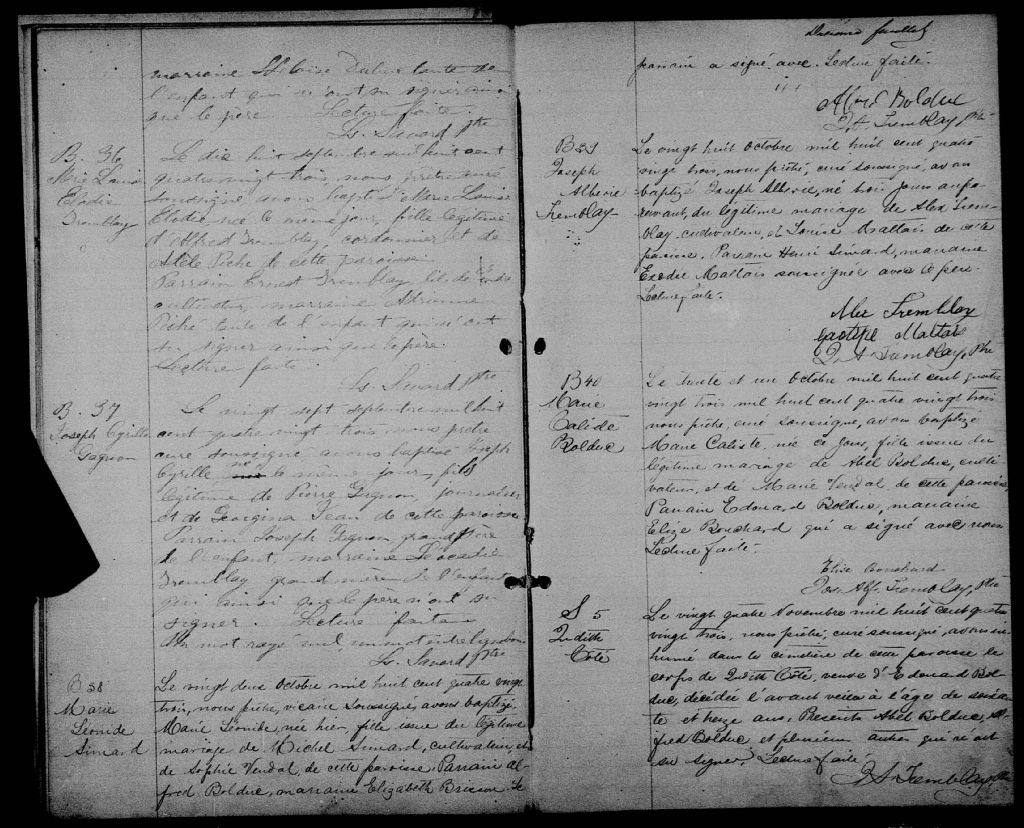 marraine Héloise Dubuc tante de
l'enfant qui n'ont su signer ainsi
que le père. Lecture faite.
Ls. Savard Ptre
B. 36
Marie Louise
Elodie
Tremblay
Le dix huit septembre mil huit cent
quatre vingt trois, nous prêtre curé
soussigné avons baptisé Marie Louise
Elodie née le même jour, fille légitime
d'Alfred Tremblay, cordonnier et de
Adèle Piché de cette paroisse
Parrain Ernest Tremblay fils de
cultivateur, marraine
Piché tante de l'enfant qui n'ont
su signer ainsi que le père.
Lecture faite.
Ls. Savard Ptre
B. 37
Joseph Cyrille
Gagnon
Le vingt sept septembre mil huit
cent quatre vingt trois nous prêtre
curé soussigné avons baptisé Joseph
Cyrille né le même jour, fils
légitime de Pierre Gagnon, journalier
et de Georgina Jean de cette paroisse
Parrain Joseph Gagnon grand père
de l'enfant, marraine Léocadie
Tremblay grand mère de l'enfant
qui ainsi que le père n'ont su
signer. Lecture faite
Un mot rayé nul, un mot entreligne bon
Ls. Savard Ptre
B 38
Marie
Léonide
Simard
Le vingt deux Octobre mil huit cent quatre vingt
trois, nous prêtre, vicaire soussigné, avons baptizé
Marie Léonide, née hier, fille issue du légitime
mariage de Michel Simard, cultivateur, et
de Sophie Vendal, de cette paroisse. Parrain Al-
fred Bolduc, marraine Elizabeth Brisson. Le
Deuxième feuillet
parrain a signé avec. Lecture faite.
Alfred Bolduc
J. A. Tremblay, Ptre
B 39
Joseph
Alberie
Tremblay
Le vingt huit Octobre mil huit cent quatre
vingt trois, nous prêtre, curé soussigné, avons
baptizé Joseph Alberie, né trois jours aupa-
ravant, du légitime mariage de Alex Trem-
blay cultivateur, et Louise Maltais de cette
paroisse. Parrain Henri Simard, marraine
Exodée Maltais soussignée avec le père.
Lecture faite.
Alex Tremblay
Maltais
J. A. Tremblay, Ptre
B 40
Marie
Caliste
Bolduc
Le trente et un Octobre mil huit cent quatre
vingt trois mil huit cent quatre vingt trois
nous prêtre, curé soussigné, avons baptizé
Marie Caliste née ce jour, fille issue du
légitime mariage de Abel Bolduc, culti-
vateur, et de Marie Vendal de cette paroisse
Parrain Edouard Bolduc, marraine
Elize Bouchard qui a signé avec nous
Lecture faite.
Elise Bouchard
Jos. Alf. Tremblay, Ptre
S 5
Judith
Côté
Le vingt quatre Novembre mil huit cent quatre
vingt trois, nous prêtre, curé soussigné, avons in-
humé dans le cimetière de cette paroisse le
corps de Judith Côté, veuve d'Edouard Bol-
duc, décédée l'avant veille à l'âge de soixan-
te et treize ans. Présents Abel Bolduc, Al-
fred Bolduc et plusieurs autres qui ne ont
su signer. Lecture faite
J. A. Tremblay, Ptre